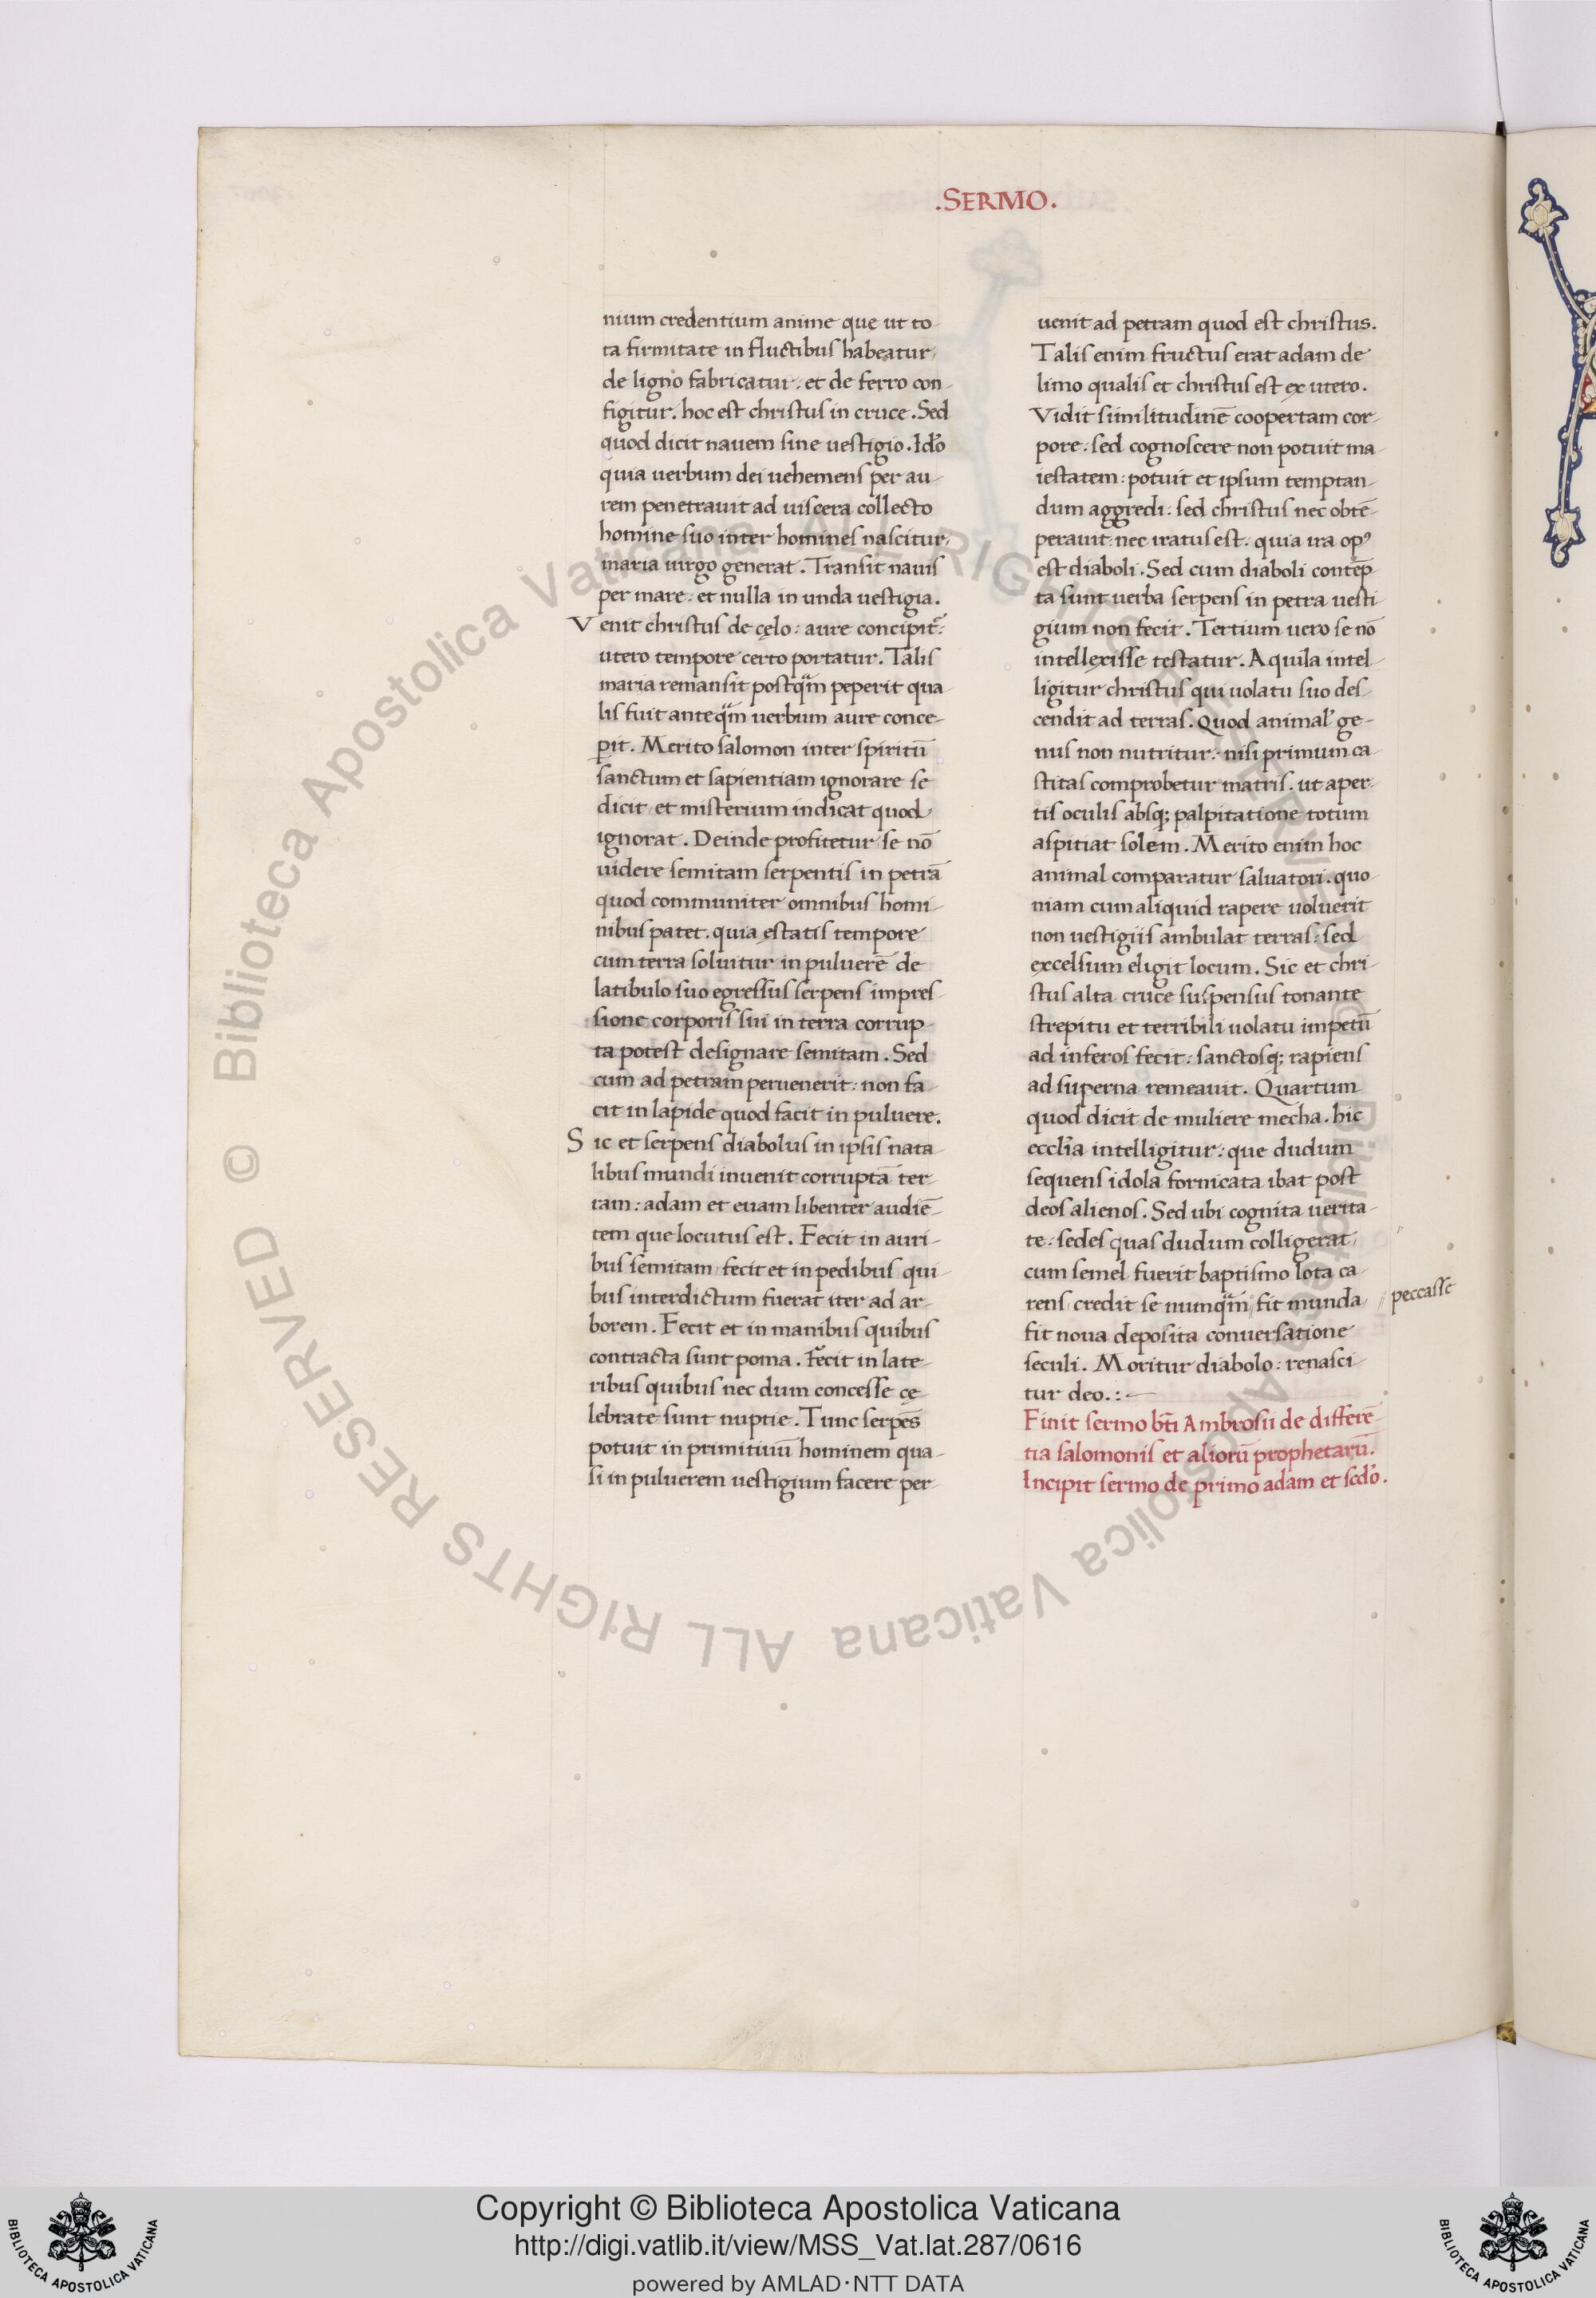 .SERMO.
nium credentium anime que ut to-
ta firmitate in fluctibus habeatur,
de ligno fabricatur. et de ferro con-
figitur. hoc est christus in cruce. Sed
quod dicit nauem sine uestigio. Ido
quia uerbum dei uehemens per au-
rem penetrauit ad uiscera collecto
homine suo inter homines nascitur,
maria uirgo generat. Transit nauis
per mare: et nulla in unda uestigia.
Venit christus de cęlo: aure concipit̃:
utero tempore certo portatur. Talis
maria remansit postq̃m peperit qua
lis fuit anteq̃m uerbum aure conce-
pit. Merito salomon inter spiritū
sanctum et sapientiam ignorare se
dicit, et misterium indicat quod
ignorat. Deinde profitetur se nō
uidere semitam serpentis in petrā
quod communiter omnibus homi-
nibus patet. quia estatis tempore
cum terra soluitur in puluerē de
latibulo suo egressus serpens impres-
sione corporis sui in terra corrup-
ta potest designare semitam. Sed
cum ad petram peruenerit: non fa-
cit in lapide quod facit in puluere.
Sic et serpens diabolus in ipsis nata-
libus mundi inuenit corruptā ter-
ram: adam et euam libenter audiē-
tem que locutus est. Fecit in auri-
bus semitam, fecit et in pedibus qui-
bus interdictum fuerat iter ad ar-
borem. Fecit et in manibus quibus
contracta sunt poma. Fecit in late-
ribus quibus nec dum concesse cę-
lebrate sunt nuptie. Tunc serpēs
potuit in primitiuū hominem qua-
si in puluerem uestigium facere per-
uenit ad petram quod est christus.
Talis enim fructus erat adam de
limo qualis et christus est ex utero.
Vidit similitudinē coopertam cor-
pore: sed cognoscere non potuit ma-
iestatem: potuit et ipsum temptan-
dum aggredi: sed christus nec obtē-
perauit: nec iratus est. quia ira opꝰ
est diaboli. Sed cum diaboli contēp-
ta sunt uerba serpens in petra uesti-
gium non fecit. Tertium uero se nō
intellexisse testatur. Aquila intel-
ligitur christus qui uolatu suo des-
cendit ad terras. Quod animal' ge-
nus non nutritur: nisi primum ca-
stitas comprobetur matris. ut aper-
tis oculis absq; palpitatione totum
aspitiat solem. Merito enim hoc
animal comparatur saluatori. quo-
niam cum aliquid rapere uoluerit
non uestigiis ambulat terras: sed
excelsum eligit locum. Sic et chri-
stus alta cruce suspensus tonante
strepitu et terribili uolatu impetū
ad inferos fecit: sanctosq; rapiens
ad superna remeauit. Quartum
quod dicit de muliere mecha. hic
eccl̃ia intelligitur: que dudum
sequens idola fornicata ibat post
deos alienos. Sed ubi cognita uerita-
te: sedes quas dudum colligerat,
cum semel fuerit baptismo lota ca-
rens, credit se numq̃m fit munda // peccasse
fit noua deposita conuersatione
seculi. Moritur diabolo: renasci-
tur deo.:-
Finit sermo bt̃i Ambrosii de differē-
tia salomonis et aliorū prophetarū.
Incipit sermo de primo adam et scd̃o.
© Biblioteca Apostolica Vaticana ALL RIGHTS RESERVED © Biblioteca Apostolica Vaticana ALL RIGHTS RESERVED
Copyright © Biblioteca Apostolica Vaticana
http://digi.vatlib.it/view/MSS_Vat.lat.287/0616
powered by AMLAD·NTT DATA
BIBLIOTECA APOSTOLICA VATICANA
BIBLIOTECA APOSTOLICA VATICANA